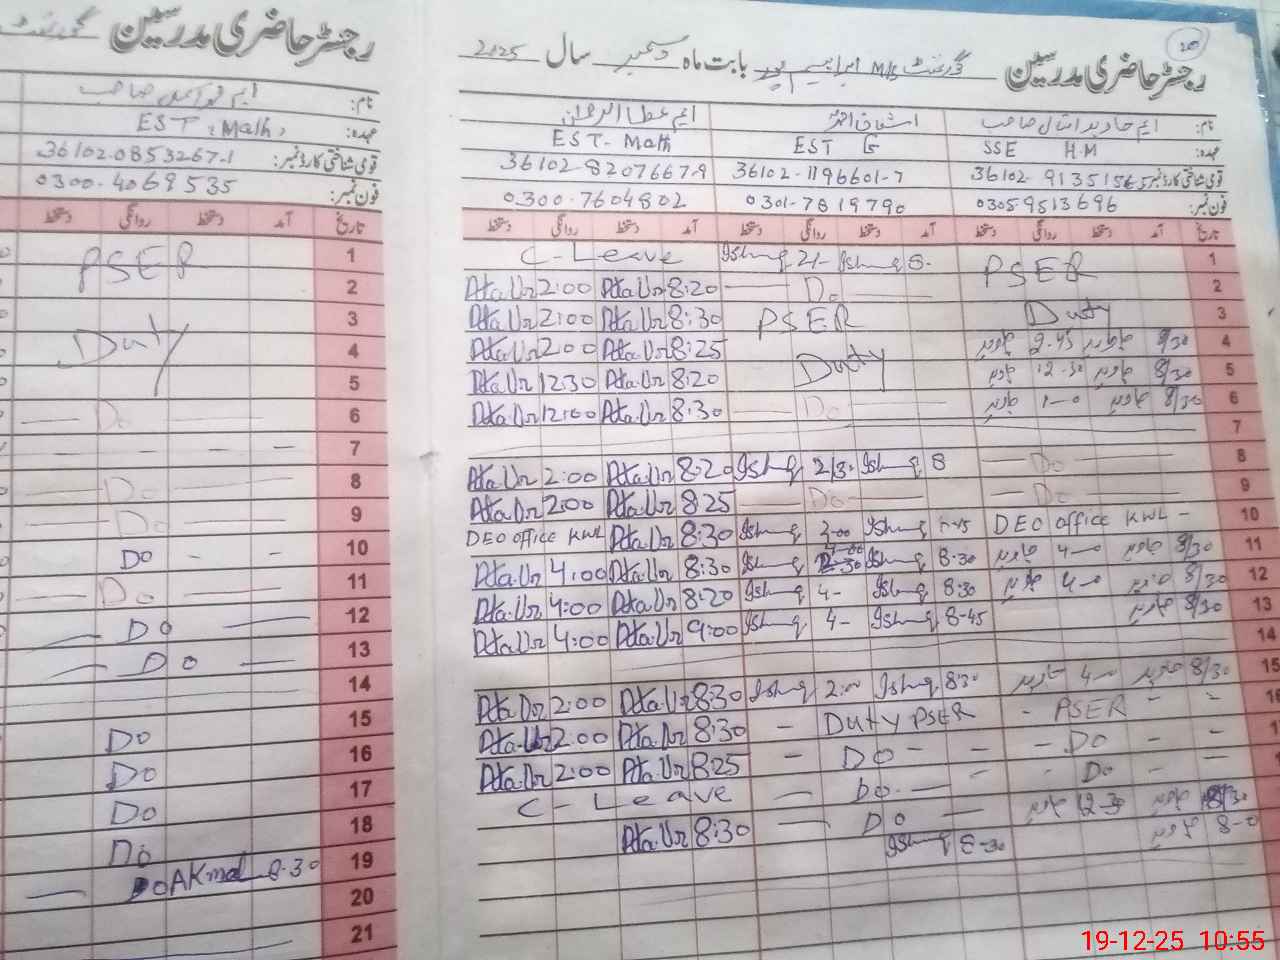 رجسٹر حاضری مدرسین گورنمنٹ
نام: ایم
عہدہ: EST (Math)
قومی شناختی کارڈ نمبر: 36102-0853267-1
فون نمبر: 0300-4069535
تاریخ آمد دستخط روانگی دستخط
1 PSER
2
3
4 Duty
5
6 Do
7
8 Do
9 Do
10 Do
11 Do
12 Do
13 Do
14
15 Do
16 Do
17 Do
18 Do
19 Do Akmal 8.30
20
21
20
رجسٹر حاضری مدرسین گورنمنٹ M/S ابراہیم پور بابت ماہ دسمبر سال 2025
نام: ایم جاوید اقبال صاحب اشفاق احمد ایم عطاالرحمٰن
عہدہ: SSE H.M EST EST-Math
قومی شناختی کارڈ نمبر 36102-9135156-5 36102-1196601-7 36102-8207667-9
فون نمبر: 0305-9513696 0301-7819790 0300-7604802
تاریخ آمد دستخط روانگی دستخط آمد دستخط روانگی دستخط آمد دستخط روانگی دستخط
1 PSER Ishaq 8- Ishaq 2/- C-Leave
2 Do 8:20 Ata.Ur 2:00 Ata.Ur
3 Duty PSER 8:30 Ata.Ur 2:00 Ata.Ur
4 8/30 جاوید 2-45 جاوید Duty 8:25 Ata.Ur 2:00 Ata.Ur
5 8/30 جاوید 12-30 جاوید 8:20 Ata.Ur 12:30 Ata.Ur
6 8/30 جاوید 1-0 جاوید Do 8:30 Ata.Ur 12:00 Ata.Ur
7
8 Do 8 Ishaq 2/3. Ishaq 8:20 Ata.Ur 2:00 Ata.Ur
9 Do Do 8:25 Ata.Ur 2:00 Ata.Ur
10 DEO office KWL Ishaq 2-00 Ishaq 8:30 Ata.Ur DEO office KWL
11 8/30 جاوید 4-0 جاوید 8.30 Ishaq Ishaq 8:30 Ata.Ur 4:00 Ata.Ur
12 8/30 جاوید 4-0 جاوید 8.30 Ishaq 4- Ishaq 8:20 Ata.Ur 4:00 Ata.Ur
13 8/30 جاوید 8-45 Ishaq 4- Ishaq 9:00 Ata.Ur 4:00 Ata.Ur
14
15 8/30 جاوید 4-0 جاوید 8.30 Ishaq 2:00 Ishaq 8:30 Ata.Ur 2:00 Ata.Ur
PSER Duty PSER 8:30 Ata.Ur 2:00 Ata.Ur
Do Do 8:25 Ata.Ur 2:00 Ata.Ur
Do Do C-Leave
8/30 جاوید 12-30 جاوید Do 8:30 Ata.Ur
8-0 جاوید 8-30 Ishaq
19-12-25 10:55